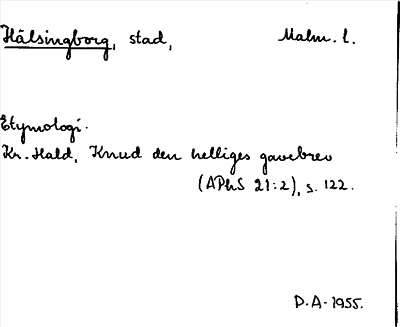 Hälsingborg, stad, Malm. l.
Etymologi.
Kr. Hald, Knud den helliges gavebrev
(APhS 21:2), s. 122.
D.A. 1955.